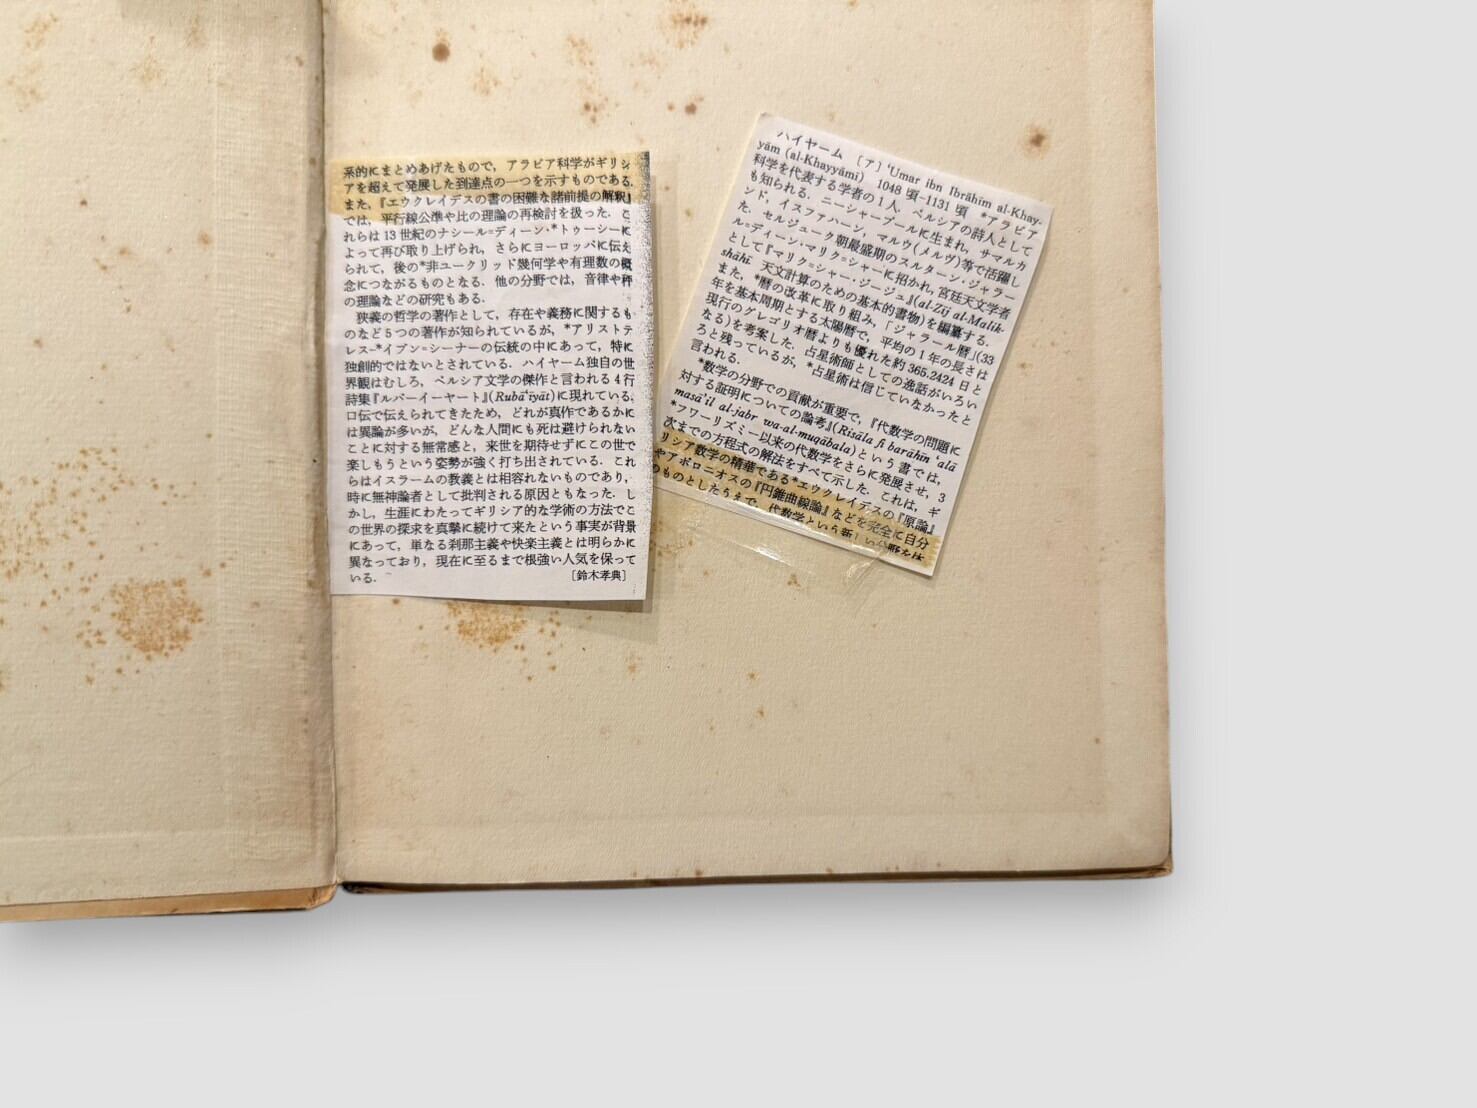 ハイヤーム [ア] ‘Umar ibn Ibrāhīm al-Khay-
yām (al-Khayyāmī) 1048 頃-1131 頃 *アラビア
科学を代表する学者の1人. ペルシアの詩人として
も知られる. ニーシャープールに生まれ, サマルカ
ンド, イスファハーン, マルウ(メルヴ)等で活躍し
た. セルジューク朝最盛期のスルターン・ジャラー
ル=ディーン・マリク=シャーに招かれ, 宮廷天文学者
として『マリク=シャー・ジージュ』(al-Zīj al-Malik-
shāhī 天文計算のための基本的書物)を編纂する.
また, *暦の改革に取り組み, 「ジャラール暦」(33
年を基本周期とする太陽暦で, 平均の1年の長さは
現行のグレゴリオ暦よりも優れた約 365.2424 日と
なる)を考案した. 占星術師としての逸話がいろい
ろと残っているが, *占星術は信じていなかったと
言われる.
*数学の分野での貢献が重要で, 『代数学の問題に
対する証明についての論考』(Risāla fi barāhīn ‘alā
masā’il al-jabr wa-al-muqābala)という書では,
*フワーリズミー以来の代数学をさらに発展させ, 3
次までの方程式の解法をすべて示した. これは, ギ
リシア数学の精華である*エウクレイデスの『原論』
やアポロニオスの『円錐曲線論』などを完全に自分
のものとしたうえで, 代数学という新しい分野を体
系的にまとめあげたもので, アラビア科学がギリシ
アを超えて発展した到達点の一つを示すものである.
また, 『エウクレイデスの書の困難な諸前提の解釈』
では, 平行線公準や比の理論の再検討を扱った. こ
れらは 13 世紀のナシール=ディーン・*トゥーシーに
よって再び取り上げられ, さらにヨーロッパに伝え
られて, 後の*非ユークリッド幾何学や有理数の概
念につながるものとなる. 他の分野では, 音律や秤
の理論などの研究もある.
狭義の哲学の著作として, 存在や義務に関するも
のなど5つの著作が知られているが, *アリストテ
レス-*イブン=シーナーの伝統の中にあって, 特に
独創的ではないとされている. ハイヤーム独自の世
界観はむしろ, ペルシア文学の傑作と言われる4行
詩集『ルバーイーヤート』(Rubā‘īyāt)に現れている.
口伝で伝えられてきたため, どれが真作であるかに
は異論が多いが, どんな人間にも死は避けられない
ことに対する無常感と, 来世を期待せずにこの世で
楽しもうという姿勢が強く打ち出されている. これ
らはイスラームの教義とは相容れないものであり,
時に無神論者として批判される原因ともなった. し
かし, 生涯にわたってギリシア的な学術の方法でこ
の世界の探求を真摯に続けて来たという事実が背景
にあって, 単なる刹那主義や快楽主義とは明らかに
異なっており, 現在に至るまで根強い人気を保って
いる. [鈴木孝典]